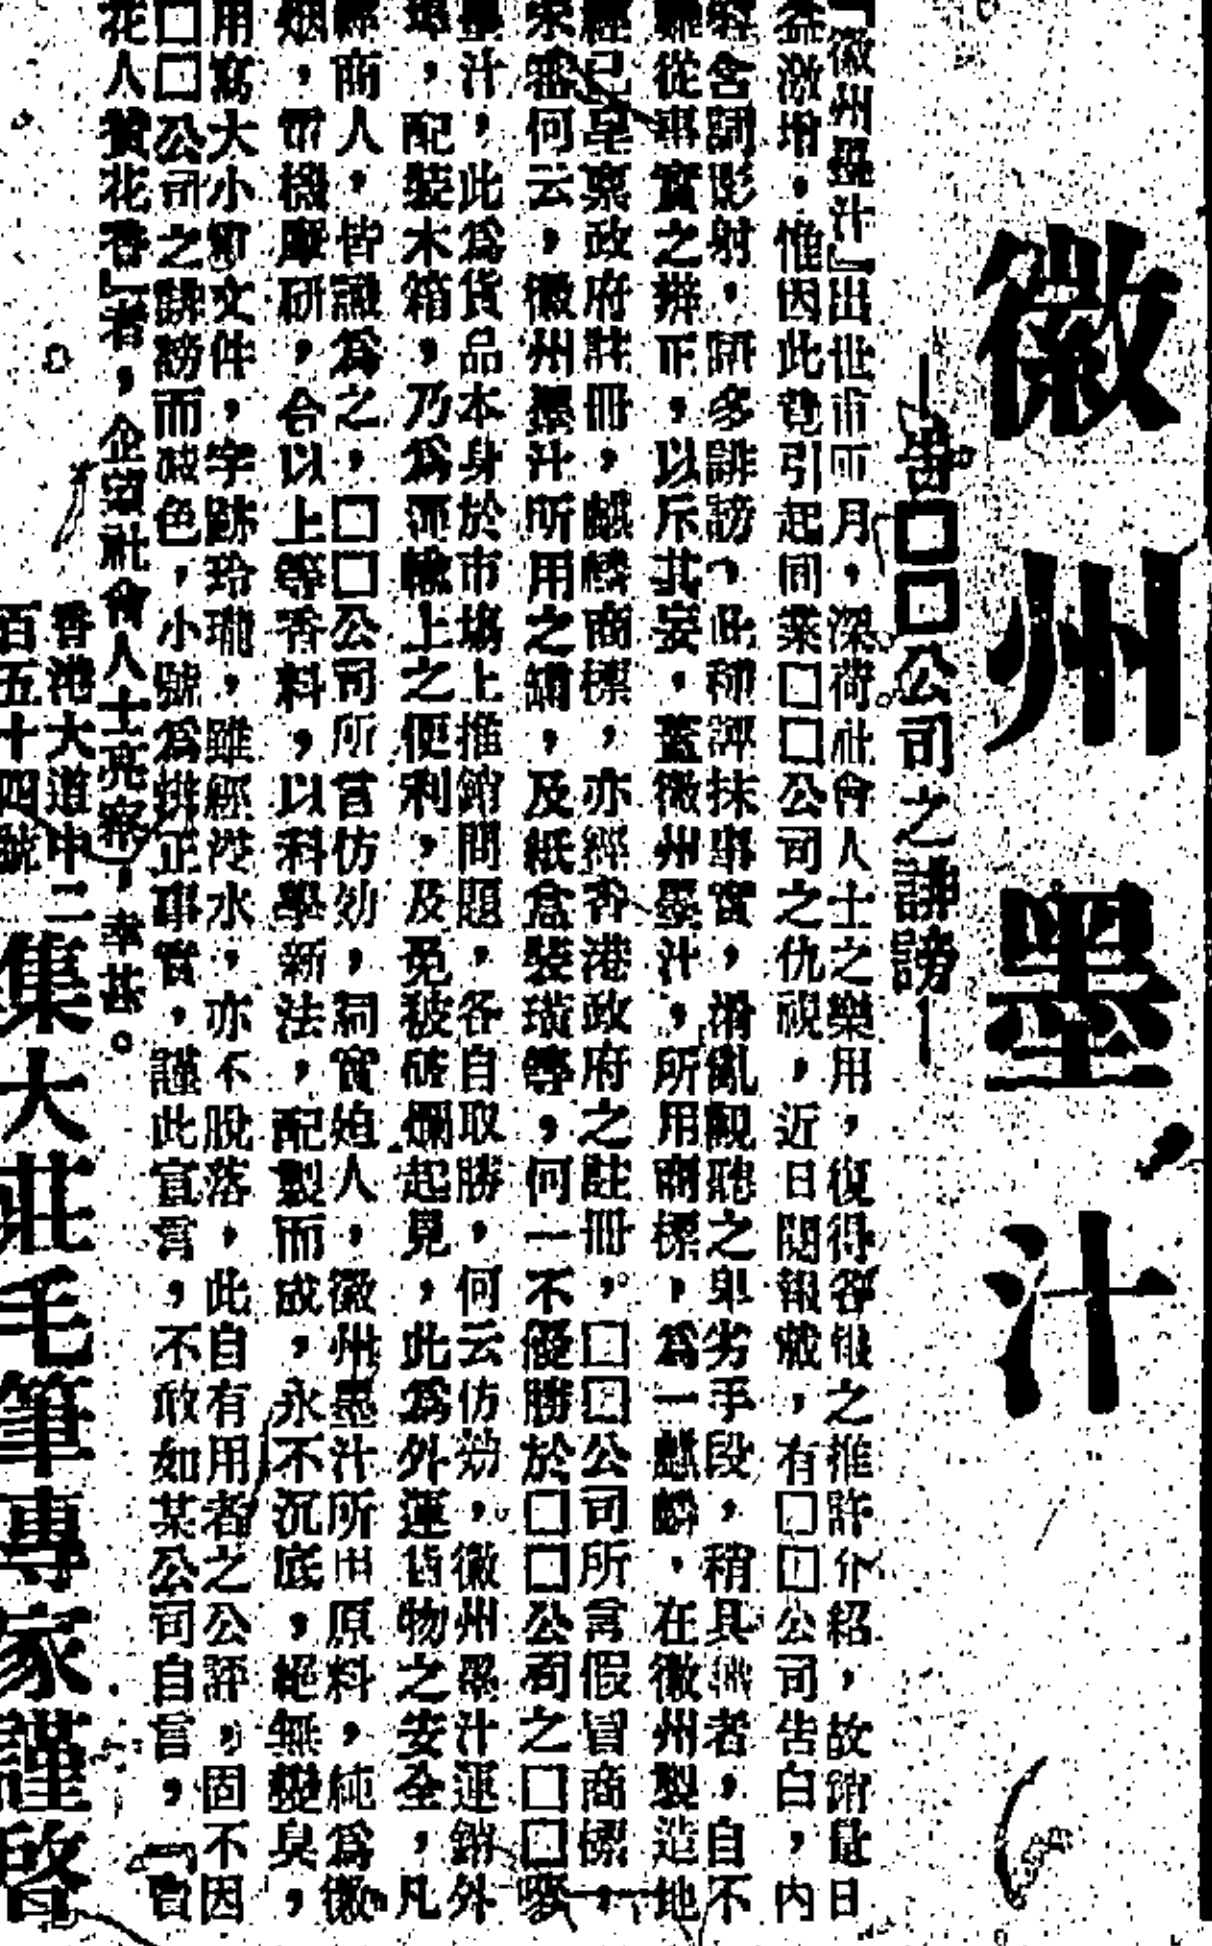 徽州墨汁
—斥□□公司之誹謗—
『徽州墨汁』出世市兩月，深荷社會人士之樂用，復得各報之推許介紹，故銷量日
益激增，惟因此竟引起同業□□公司之仇視，近日閱報載，有□□公司告白，內
容含詞影射，諸多誹謗，此種譁抹事實，淆亂觀聽之卑劣手段，稍具識者，自不
難從事實之辨正，以斥其妄，蓋徽州墨汁，所用商標，為一麒麟，在徽州製造地
經已呈稟政府註冊，麒麟商標，亦經香港政府之註冊，□□公司所言假冒商標，
未審何云，徽州墨汁所用之罇，及紙盒裝璜等，何一不優勝於□□公司之□□嘜
墨汁，此為貨品本身於市場上推銷問題，各自取勝，何云仿効，徽州墨汁運銷外
埠，配裝木箱，乃為運輸上之便利，及免被破爛起見，此為外運貨物之安全，凡
經商人，皆識為之，□□公司所言仿効，詞實迫人，徽州墨汁所用原料，純為徽
烟，電機磨研，合以上等香料，以科學新法，配製而成，永不沉底，絕無變臭，
用寫大小文件，字跡玲瓏，雖經浸水，亦不脫落，此自有用者之公評，固不因
□□公司之誹謗而減色，小號為辨正事實，謹此宣言，不敢如某公司自言，『賣
花人贊花香』者，企望社會人士亮察，幸甚。
香港大道中二
百五十四號
集大莊毛筆專家謹啓